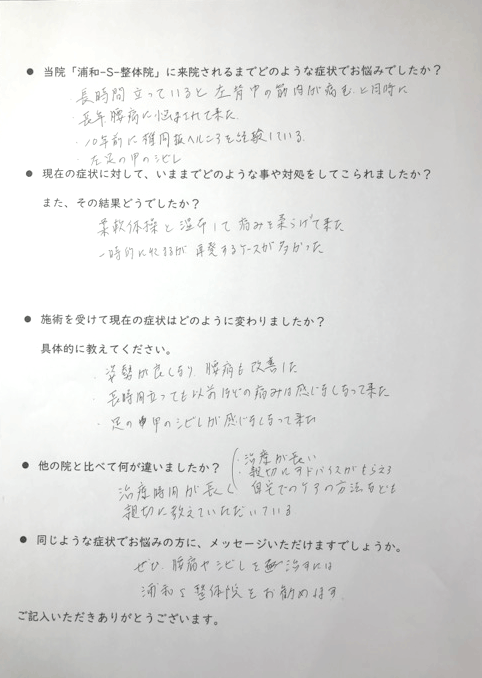 ● 当院「浦和-S-整体院」に来院されるまでどのような症状でお悩みでしたか？
長時間立っていると左背中の筋肉が痛む と同時に
・長年腰痛に悩まされて来た
・10年前に椎間板ヘルニアを経験している.
・左足の甲のシビレ
● 現在の症状に対して、いままでどのような事や対処をしてこられましたか？
また、その結果どうでしたか？
柔軟体操と湿布して痛みを柔らげて来た
一時的に収るが 再発するケースが多かった
● 施術を受けて現在の症状はどのように変わりましたか？
具体的に教えてください。
・姿勢が良くなり、腰痛も改善した
・長時間立っても以前ほどの痛みは感じなくなって来た
・足の甲のシビレが感じなくなって来た
● 他の院と比べて何が違いましたか？
・治療が長い
・親切にアドバイスがもらえる
治療時間が長く 自宅でのケアの方法なども
親切に教えていただいている
● 同じような症状でお悩みの方に、メッセージいただけますでしょうか。
ぜひ、腰痛やシビレを治すには
浦和S整体院をお勧めます.
ご記入いただきありがとうございます。